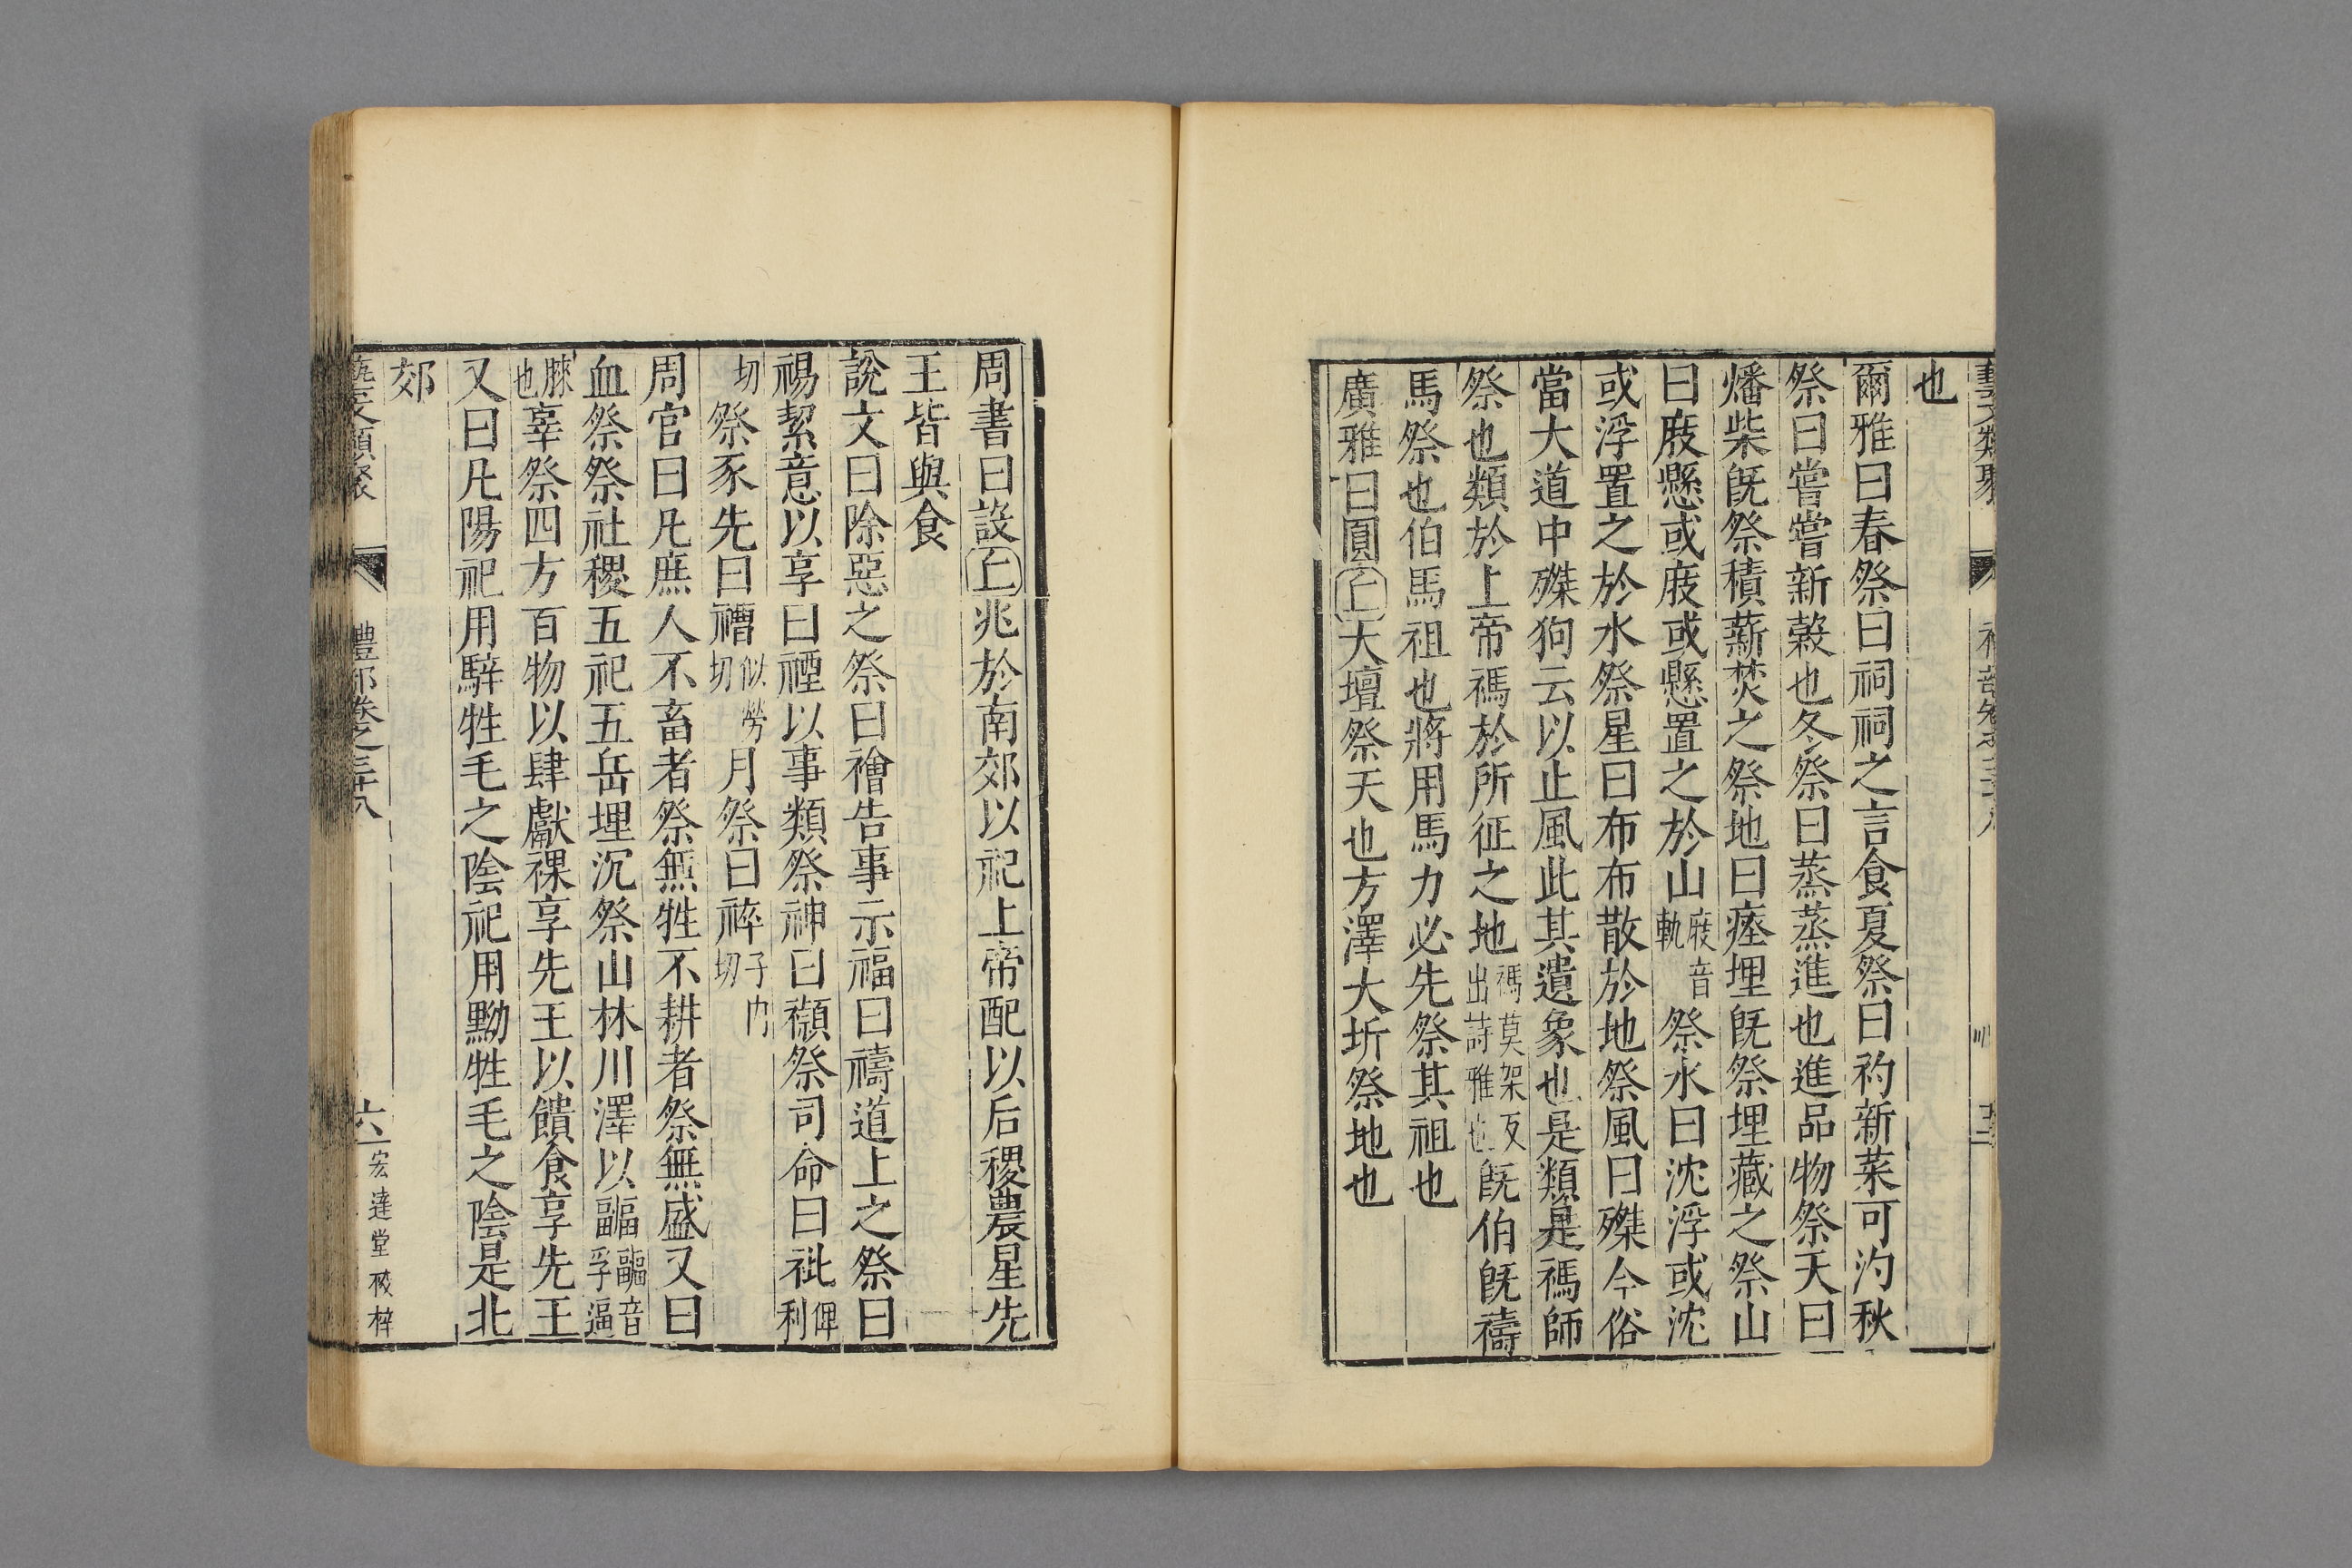 藝文類聚
也
爾雅曰春祭曰祠祠之言食夏祭曰礿新菜可汋秋
祭曰嘗嘗新榖也冬祭曰蒸蒸進也進品物祭天曰
燔柴旣祭積薪焚之祭地曰瘞埋旣祭埋藏之祭山
曰庪懸或庪或懸置之於山庪音軌祭水曰沈浮或沈
或浮置之於水祭星曰布布散於地祭風曰磔今俗
當大道中磔狗云以止風此其遺象也是類是禡師
祭也類於上帝禡於所征之地禡莫架反出詩雅也旣伯旣禱
馬祭也伯馬祖也將用馬力必先祭其祖也
廣雅曰圓丘大壇祭天也方澤大圻祭地也
周書曰設丘兆於南郊以祀上帝配以后稷農星先
王皆與食
說文曰除惡之祭曰禬告事示福曰禱道上之祭曰
禓絜意以享曰禋以事類祭神曰䫶祭司命曰祉俾利
切祭豕先曰禮似勞切月祭曰祽子內切
周官曰凡庶人不畜者祭無牲不耕者祭無盛又曰
血祭祭社稷五祀五岳埋沉祭山林川澤以疈疈音孚逼
脥也辜祭四方百物以肆獻祼享先王以饋食享先王
又曰凡陽祀用騂牲毛之陰祀用黝牲毛之陰是北
郊
藝文類聚
禮部卷之三十八
六
宏達堂校梓